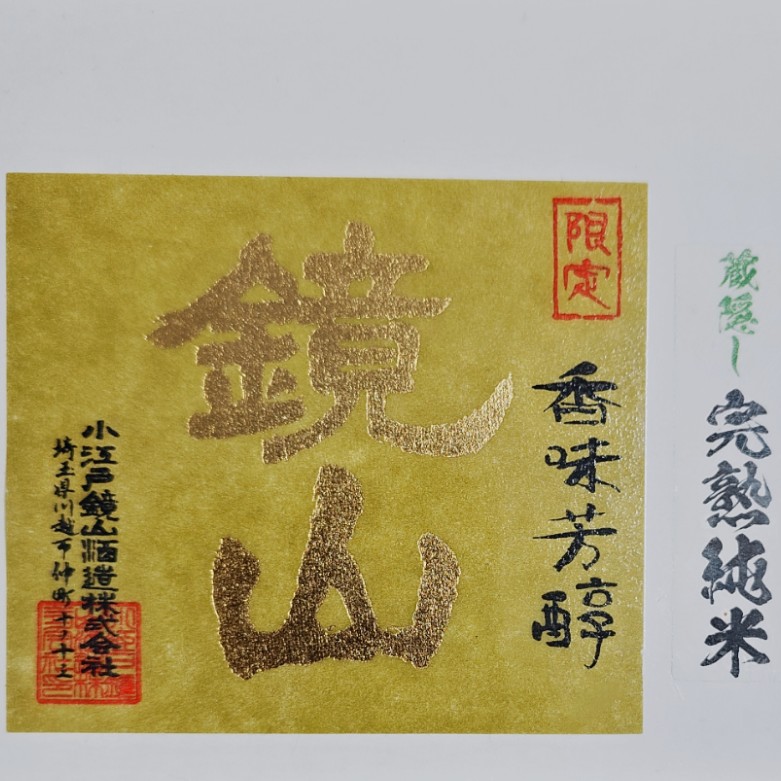 蔵隠し
完熟純米
限定
香味芳醇
鏡山
小江戸鏡山酒造株式会社
埼玉県川越市仲町十ノ十三